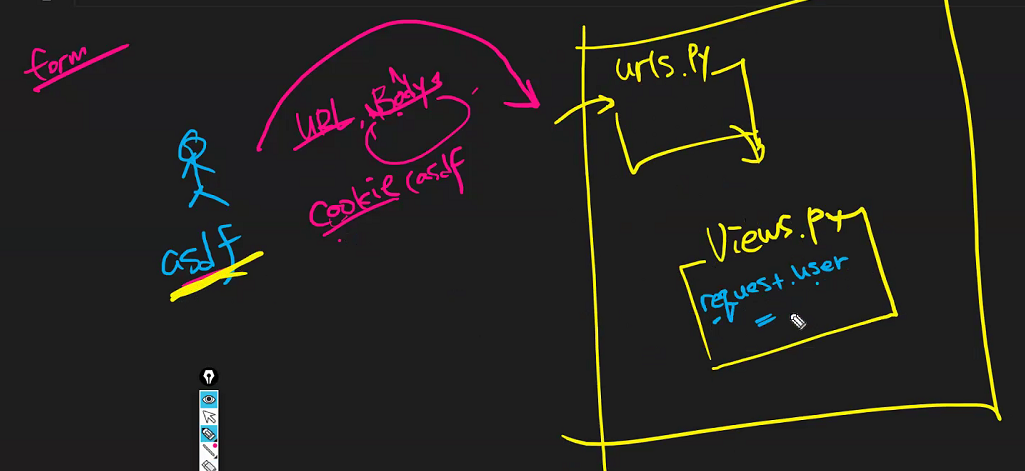 form
URL, Body
cookie(asdf
asdf
urls.py
views.py
request.user
=